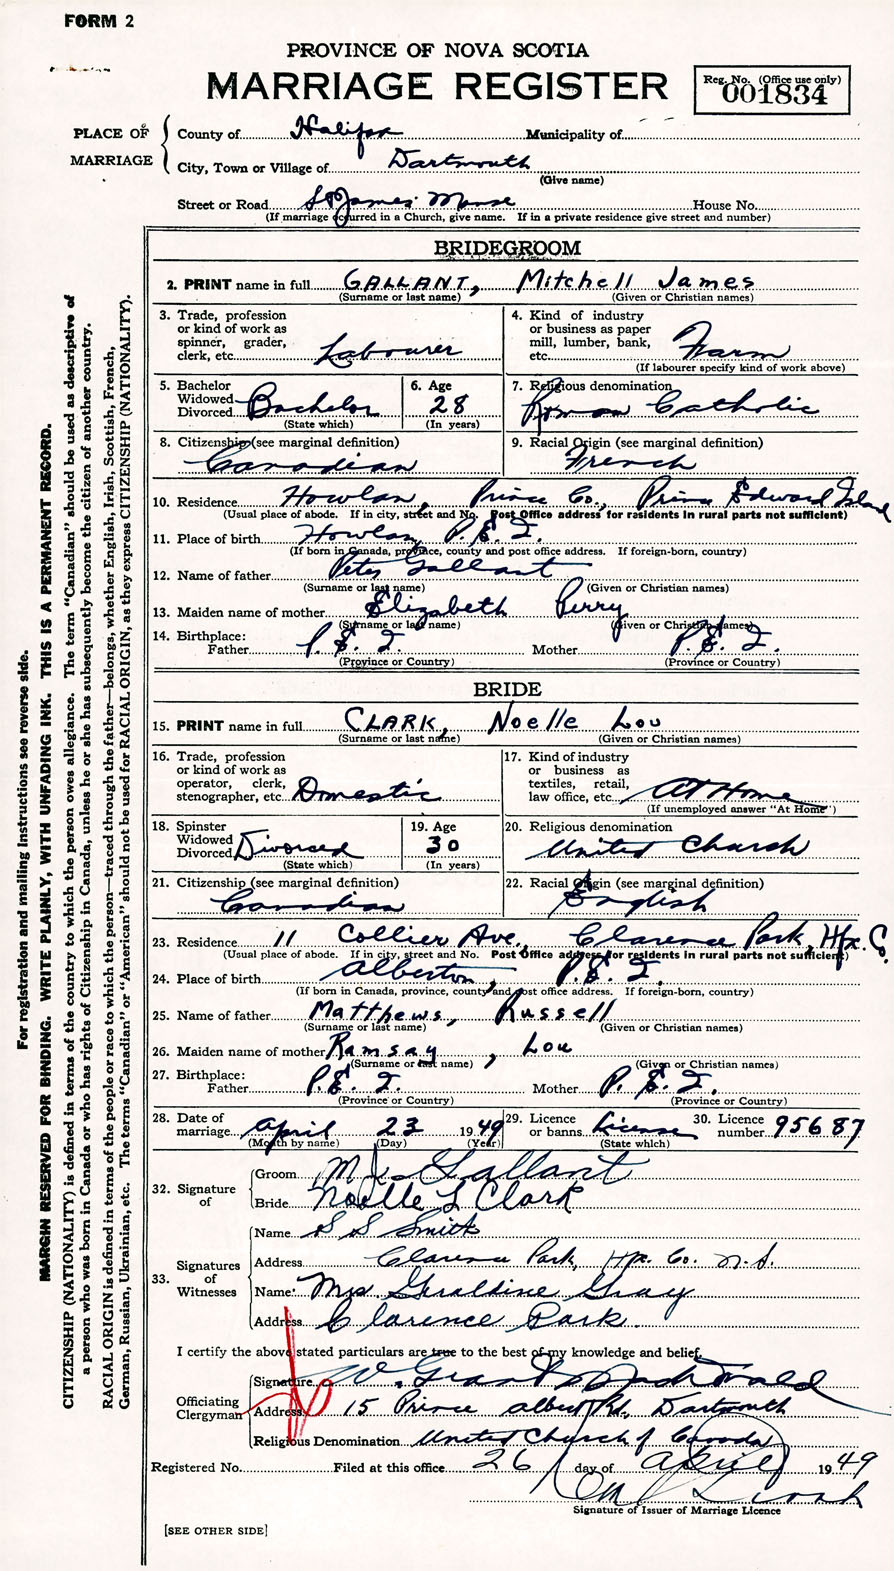 FORM 2
PROVINCE OF NOVA SCOTIA
MARRIAGE REGISTER
Reg. No. (Office use only)
001834
PLACE OF MARRIAGE
County of Halifax Municipality of
City, Town or Village of Dartmouth
(Give name)
Street or Road St James Manse House No.
(If marriage occurred in a Church, give name. If in a private residence give street and number)
BRIDEGROOM
2. PRINT name in full GALLANT, Mitchell James
(Surname or last name) (Given or Christian names)
3. Trade, profession or kind of work as spinner, grader, clerk, etc. Labourer
4. Kind of industry or business as paper mill, lumber, bank, etc. Farm
(If labourer specify kind of work above)
5. Bachelor Widowed Divorced Bachelor
(State which)
6. Age 28
(In years)
7. Religious denomination Roman Catholic
8. Citizenship (see marginal definition) Canadian
9. Racial Origin (see marginal definition) French
10. Residence Howlan, Prince Co., Prince Edward Island
(Usual place of abode. If in city, street and No. Post Office address for residents in rural parts not sufficient)
11. Place of birth Howlan, P.E.I.
(If born in Canada, province, county and post office address. If foreign-born, country)
12. Name of father Peter Gallant
(Surname or last name) (Given or Christian names)
13. Maiden name of mother Elizabeth Perry
(Surname or last name) (Given or Christian names)
14. Birthplace:
Father P.E.I. Mother P.E.I.
(Province or Country) (Province or Country)
BRIDE
15. PRINT name in full CLARK, Noelle Lou
(Surname or last name) (Given or Christian names)
16. Trade, profession or kind of work as operator, clerk, stenographer, etc. Domestic
17. Kind of industry or business as textiles, retail, law office, etc. At Home
(If unemployed answer "At Home")
18. Spinster Widowed Divorced Divorced
(State which)
19. Age 30
(In years)
20. Religious denomination United Church
21. Citizenship (see marginal definition) Canadian
22. Racial Origin (see marginal definition) English
23. Residence 11 Collier Ave., Clarence Park, Hfx. Co.
(Usual place of abode. If in city, street and No. Post Office address for residents in rural parts not sufficient)
24. Place of birth Alberton, P.E.I.
(If born in Canada, province, county and post office address. If foreign-born, country)
25. Name of father Matthews, Russell
(Surname or last name) (Given or Christian names)
26. Maiden name of mother Ramsay, Lou
(Surname or last name) (Given or Christian names)
27. Birthplace:
Father P.E.I. Mother P.E.I.
(Province or Country) (Province or Country)
28. Date of marriage April 23 1949
(Month by name) (Day) (Year)
29. Licence or banns License
(State which)
30. Licence number 95687
32. Signature of
Groom M J Gallant
Bride Noelle L Clark
33. Signatures of Witnesses
Name S S Smith
Address Clarence Park, Hfx. Co. N.S.
Name Mrs Geraldine Gray
Address Clarence Park.
I certify the above stated particulars are true to the best of my knowledge and belief.
Officiating Clergyman
Signature W. Grant MacDonald
Address 15 Prince Albert Rd. Dartmouth
Religious Denomination United Church of Canada
Registered No. Filed at this office 26 day of April 1949
Signature of Issuer of Marriage Licence
[SEE OTHER SIDE]
For registration and mailing instructions see reverse side.
MARGIN RESERVED FOR BINDING. WRITE PLAINLY, WITH UNFADING INK. THIS IS A PERMANENT RECORD.
CITIZENSHIP (NATIONALITY) is defined in terms of the country to which the person owes allegiance. The term "Canadian" should be used as descriptive of
a person who was born in Canada or who has rights of Citizenship in Canada, unless he or she has subsequently become the citizen of another country.
RACIAL ORIGIN is defined in terms of the people or race to which the person—traced through the father—belongs, whether English, Irish, Scottish, French,
German, Russian, Ukrainian, etc. The terms "Canadian" or "American" should not be used for RACIAL ORIGIN, as they express CITIZENSHIP (NATIONALITY).